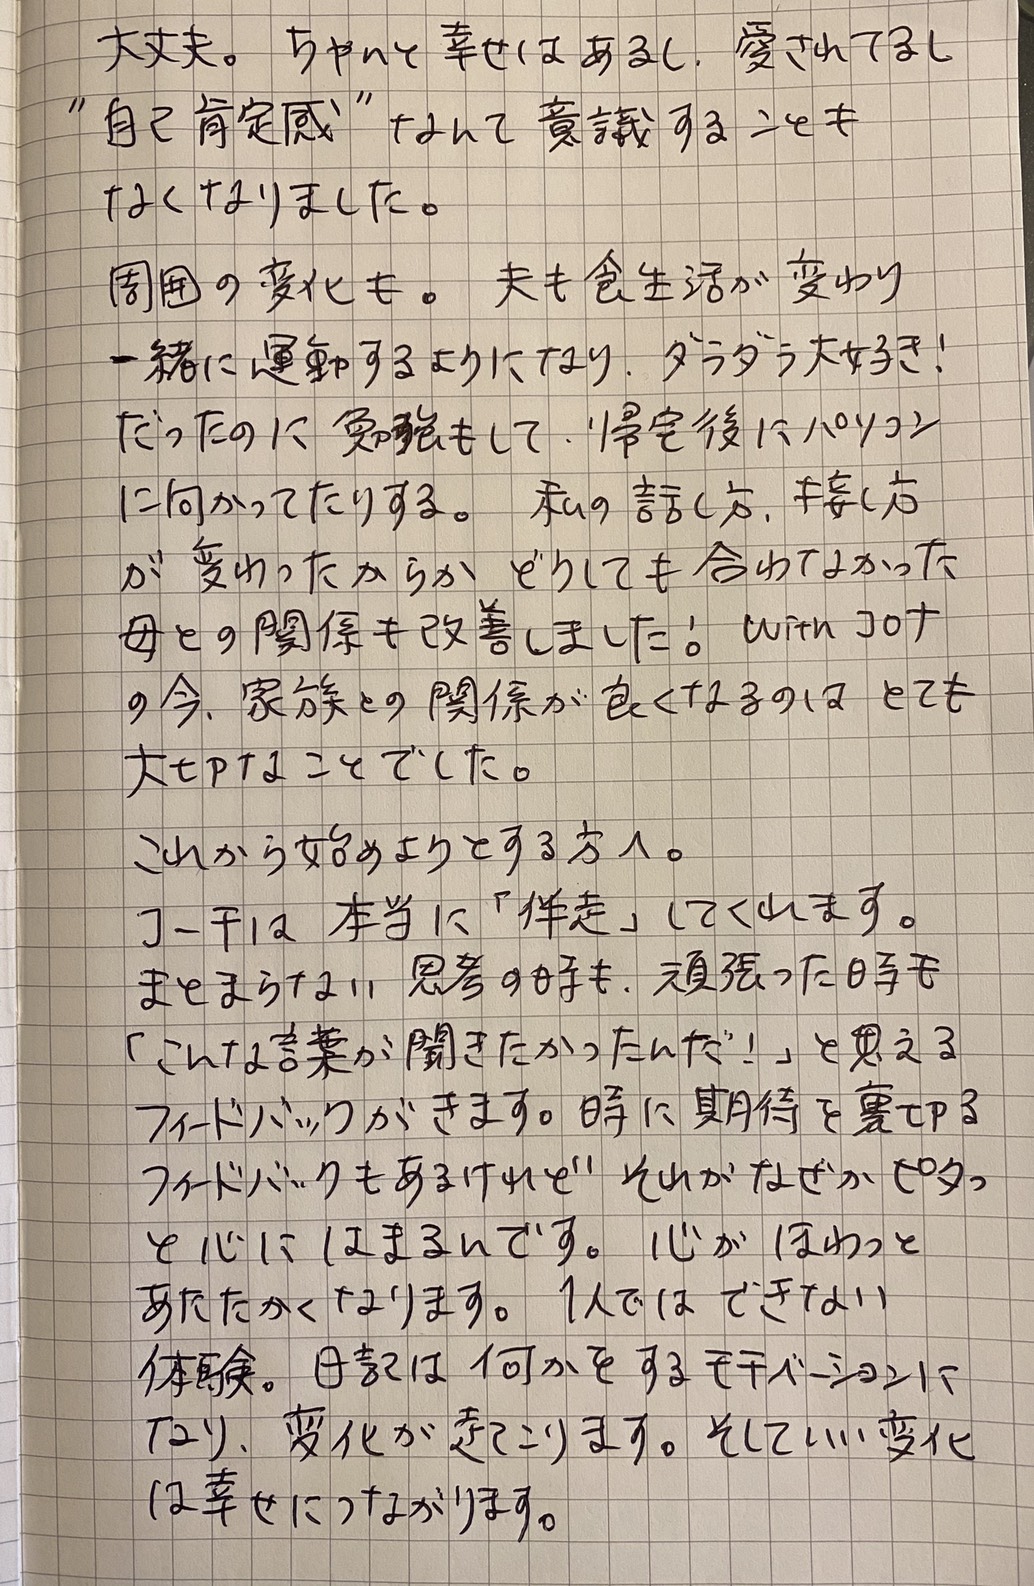 大丈夫。ちゃんと幸せはあるし、愛されてるし
"自己肯定感"なんて意識することも
なくなりました。
周囲の変化も。夫も食生活が変わり
一緒に運動するようになり、ダラダラ大好き!
だったのに勉強もして、帰宅後にパソコン
に向かってたりする。私の話し方、接し方
が変わったからかどうしても合わなかった
母との関係も改善しました! withコロナ
の今、家族との関係が良くなるのはとても
大切なことでした。
これから始めようとする方へ。
コーチは本当に「伴走」してくれます。
まとまらない思考の時も、頑張った時も
「こんな言葉が聞きたかったんだ!」と思える
フィードバックがきます。時に期待を裏切る
フィードバックもあるけれど それがなぜかピタっ
と心にはまるんです。心がほわっと
あたたかくなります。1人ではできない
体験。日記は何かをするモチベーションに
なり、変化が起こります。そしていい変化
は幸せにつながります。